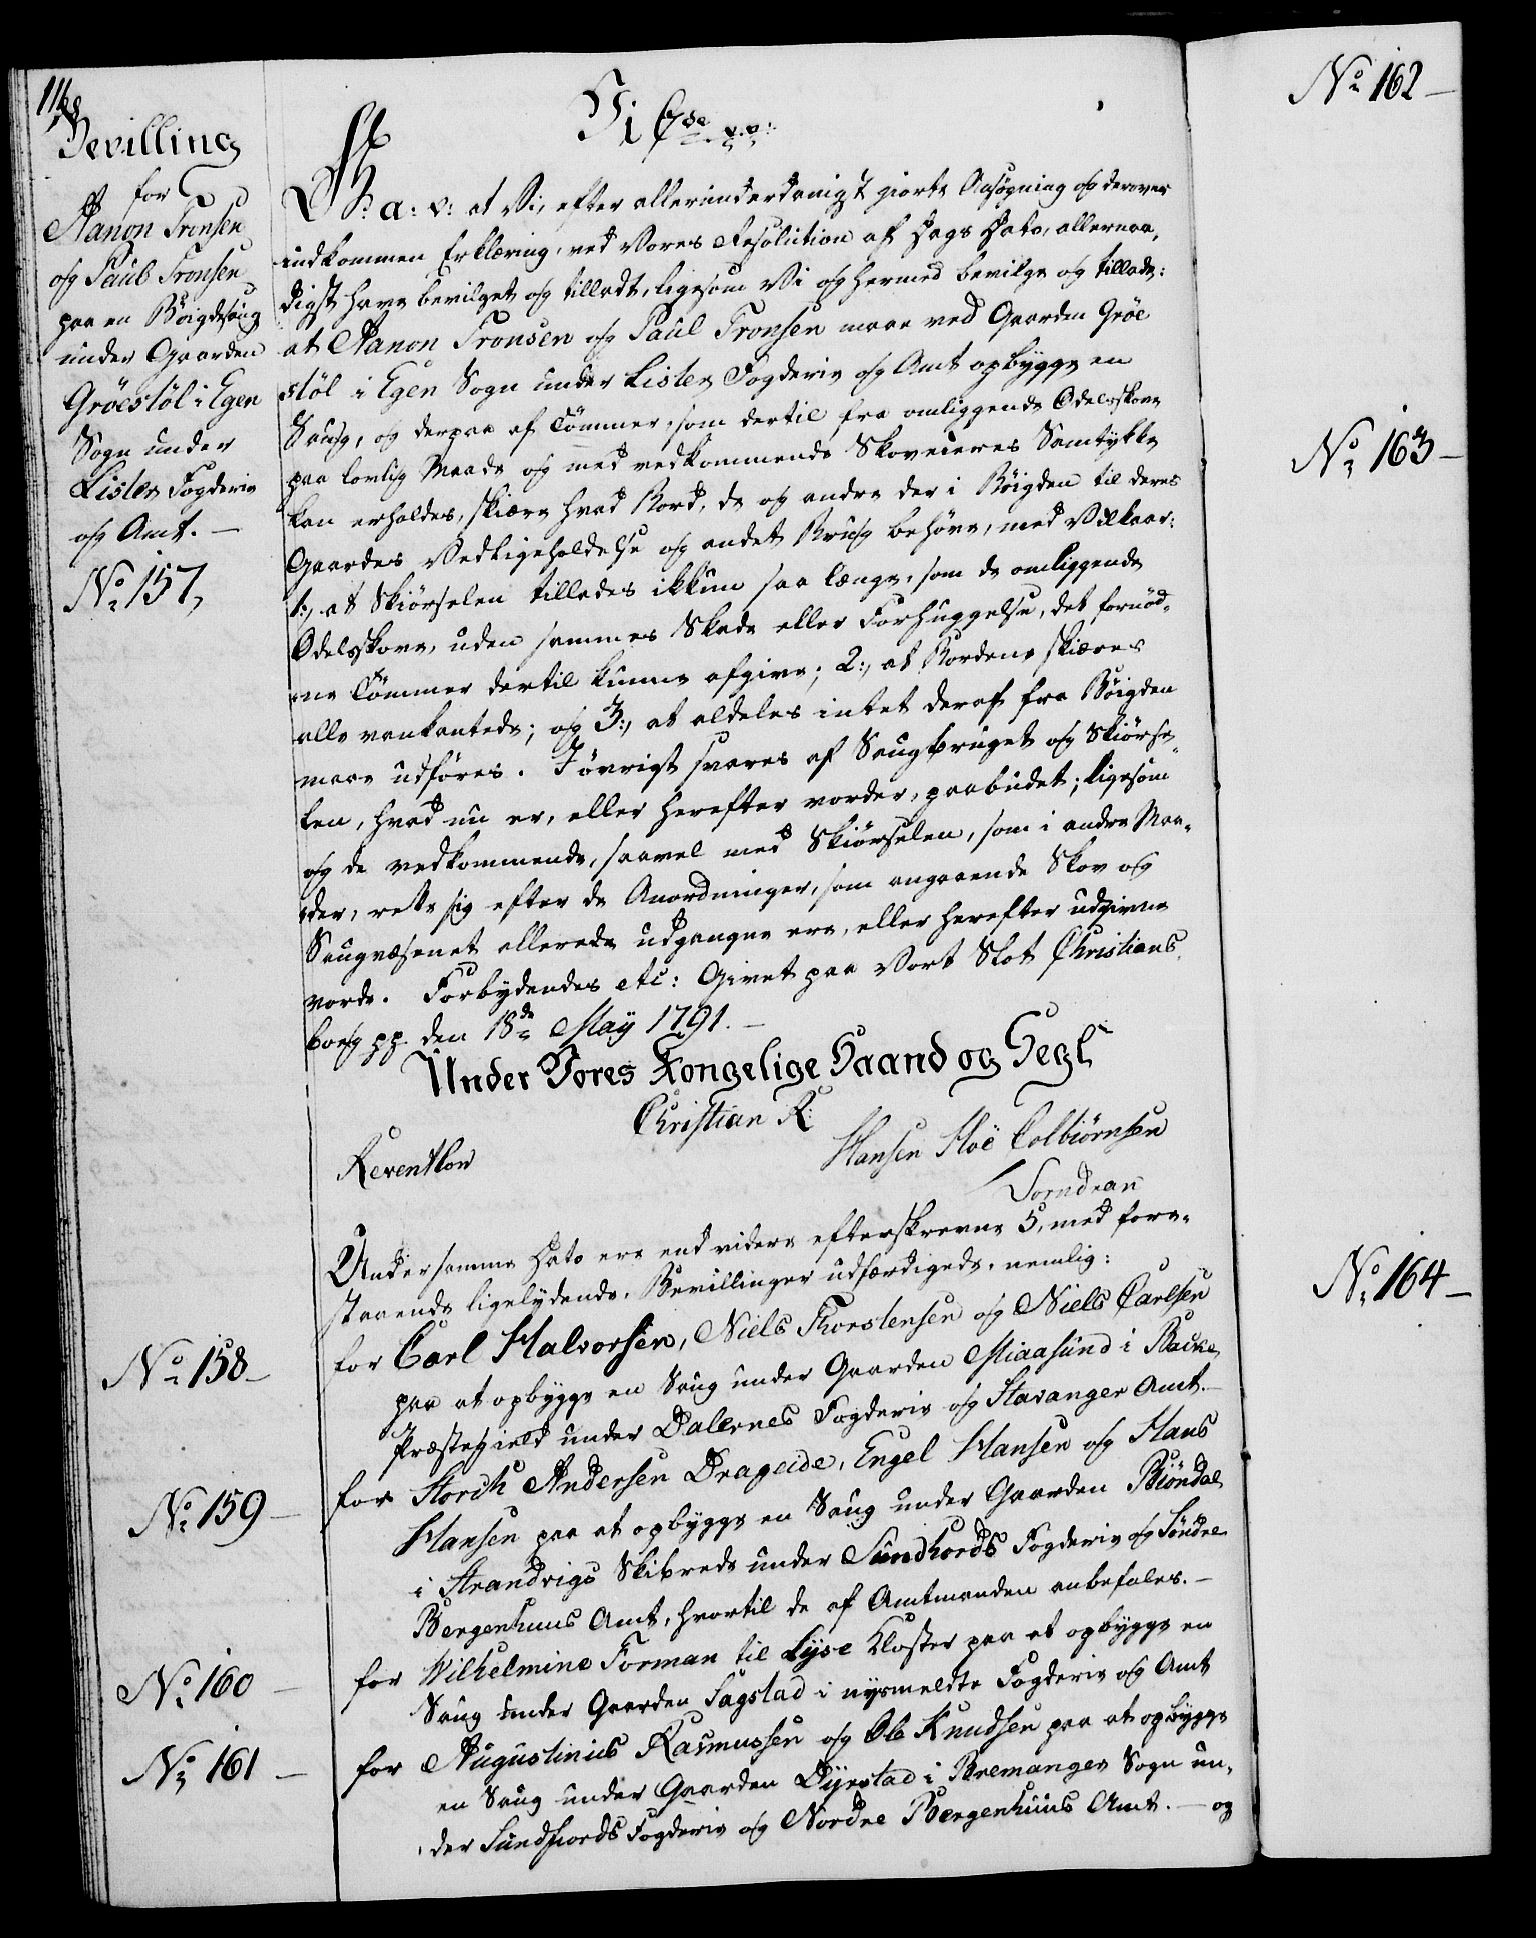 118
Bevilling
for
Aanon Tronsen
og Paul Tronsen
paa en Bøigdesaug
under Gaarden
Grøestøl i Egen
Sogn under
Lister Fogderie
og Amt. —
No 157,
Vi C 7de v.v:
G: a: v: at Vi, efter allerunderdanigst giorte Ansøgning og derover
indkommen Erklæring, ved Vores Resolution af Dags Dato, allernaa-
digst have bevilget og tilladt, ligesom Vi og hermed bevilge og tillade:
at Aanon Tronsen og Paul Tronsen maae ved Gaarden Grøe
støl i Egen Sogn under Lister Fogderie og Amt opbygge en
Saug, og derpaa af Tømmer, som dertil fra omliggende Odelsskove
paa lovlig Maade og med vedkommende Skoveieres Samtykke
kan erholdes, skiære hvad Bord, de og andre der i Bøigden til deres
Gaardes Vedligeholdelse og andet Brug behøve, med Vilkaar:
1:, at Skiørselen tillades ikkun saa længe, som de omliggende
Odelsskove, uden sammes Skade eller Forhuggelse, det fornød-
ne Tømmer dertil kunne afgive; 2:, at Bordene skiæres
alle vankantede; og 3:, at aldeles intet deraf fra Bøigden
maae udføres. I øvrigt svares af Saugbruget og Skiørse-
len, hvad nu er, eller herefter vorder, paabudet; ligesom
og de vedkommende, saavel med Skiørselen, som i andre Maa-
der, rette sig efter de Anordninger, som angaaende Skov og
Saugvæsenet allerede udgangne ere, eller herefter udgivne
vorde. Forbydendes etc: Givet paa Vort Slot Christians-
borg pp. den 18de Maÿ 1791. —
Under Vores Kongelige Haand og Segl
Christian R.
Reventlow
Hansen Hoë Colbiørnsen
Sorndran
Under samme Dato ere end videre efterskrevne 5, med fore-
staaende ligelydende, Bevillinger udfærdigede, nemlig:
No 158 —
for Carl Halvorsen, Niels Thorstensen og Niels Carlsen
paa at opbygge en Saug under Gaarden Miaasund i Backe
Præstegield under Dalernes Fogderie og Stavanger Amt. —
No 159 —
for Storck Andersen Drageide, Engel Hansen og Hans
Hansen paa at opbygge en Saug under Gaarden Biöndal
i Strandvigs Skibrede under Sundhords Fogderie og Söndre
Bergenhuus Amt, hvortil de af Amtmanden anbefales. —
No 160 —
for Wilhelmine Forman til Lyse Kloster paa at opbygge en
Saug under Gaarden Sagstad i nysmeldte Fogderie og Amt
No 161 —
for Augustinius Rasmussen og Ole Knudsen paa at opbygge
en Saug under Gaarden Dyrstad i Bremanger Sogn un-
der Sundfiords Fogderie og Nordre Bergenhuus Amt. — og
No 162 —
No 163 —
No 164 —